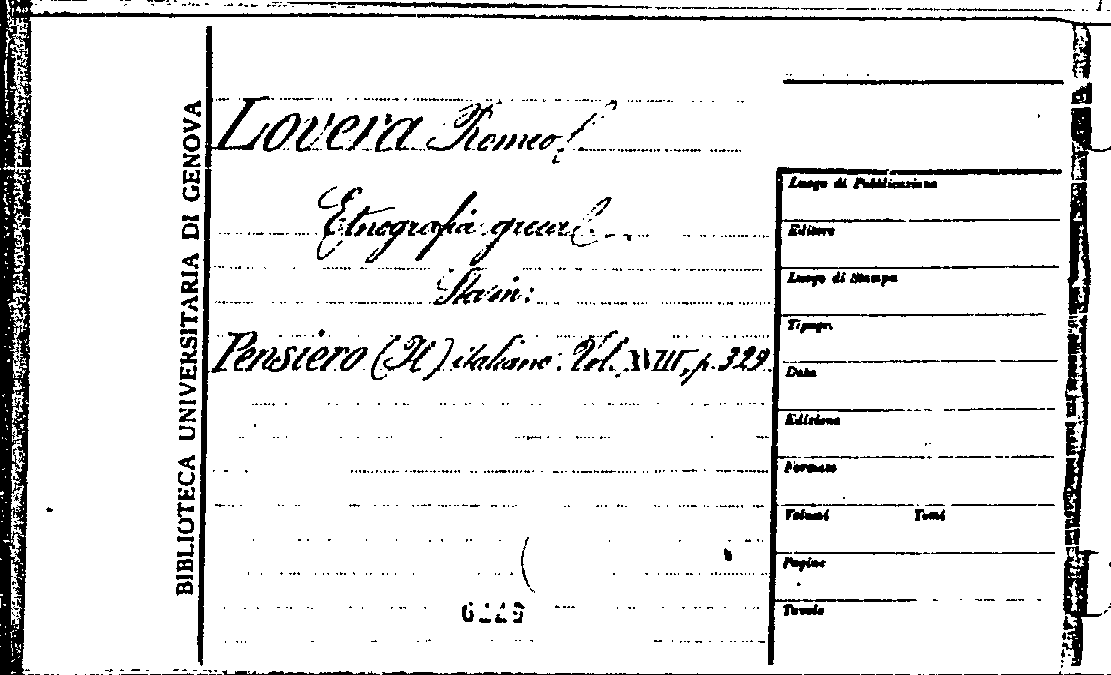 BIBLIOTECA UNIVERSITARIA DI GENOVA
Lovera Romeo
Etnografia
Sta in:
Pensiero (Il) italiano. Vol. XVIII, p. 329.
Luogo di Pubblicazione
Editore
Luogo di Stampa
Tipogr.
Data
Edizione
Formato
Volumi Tomi
Pagine
Tavole